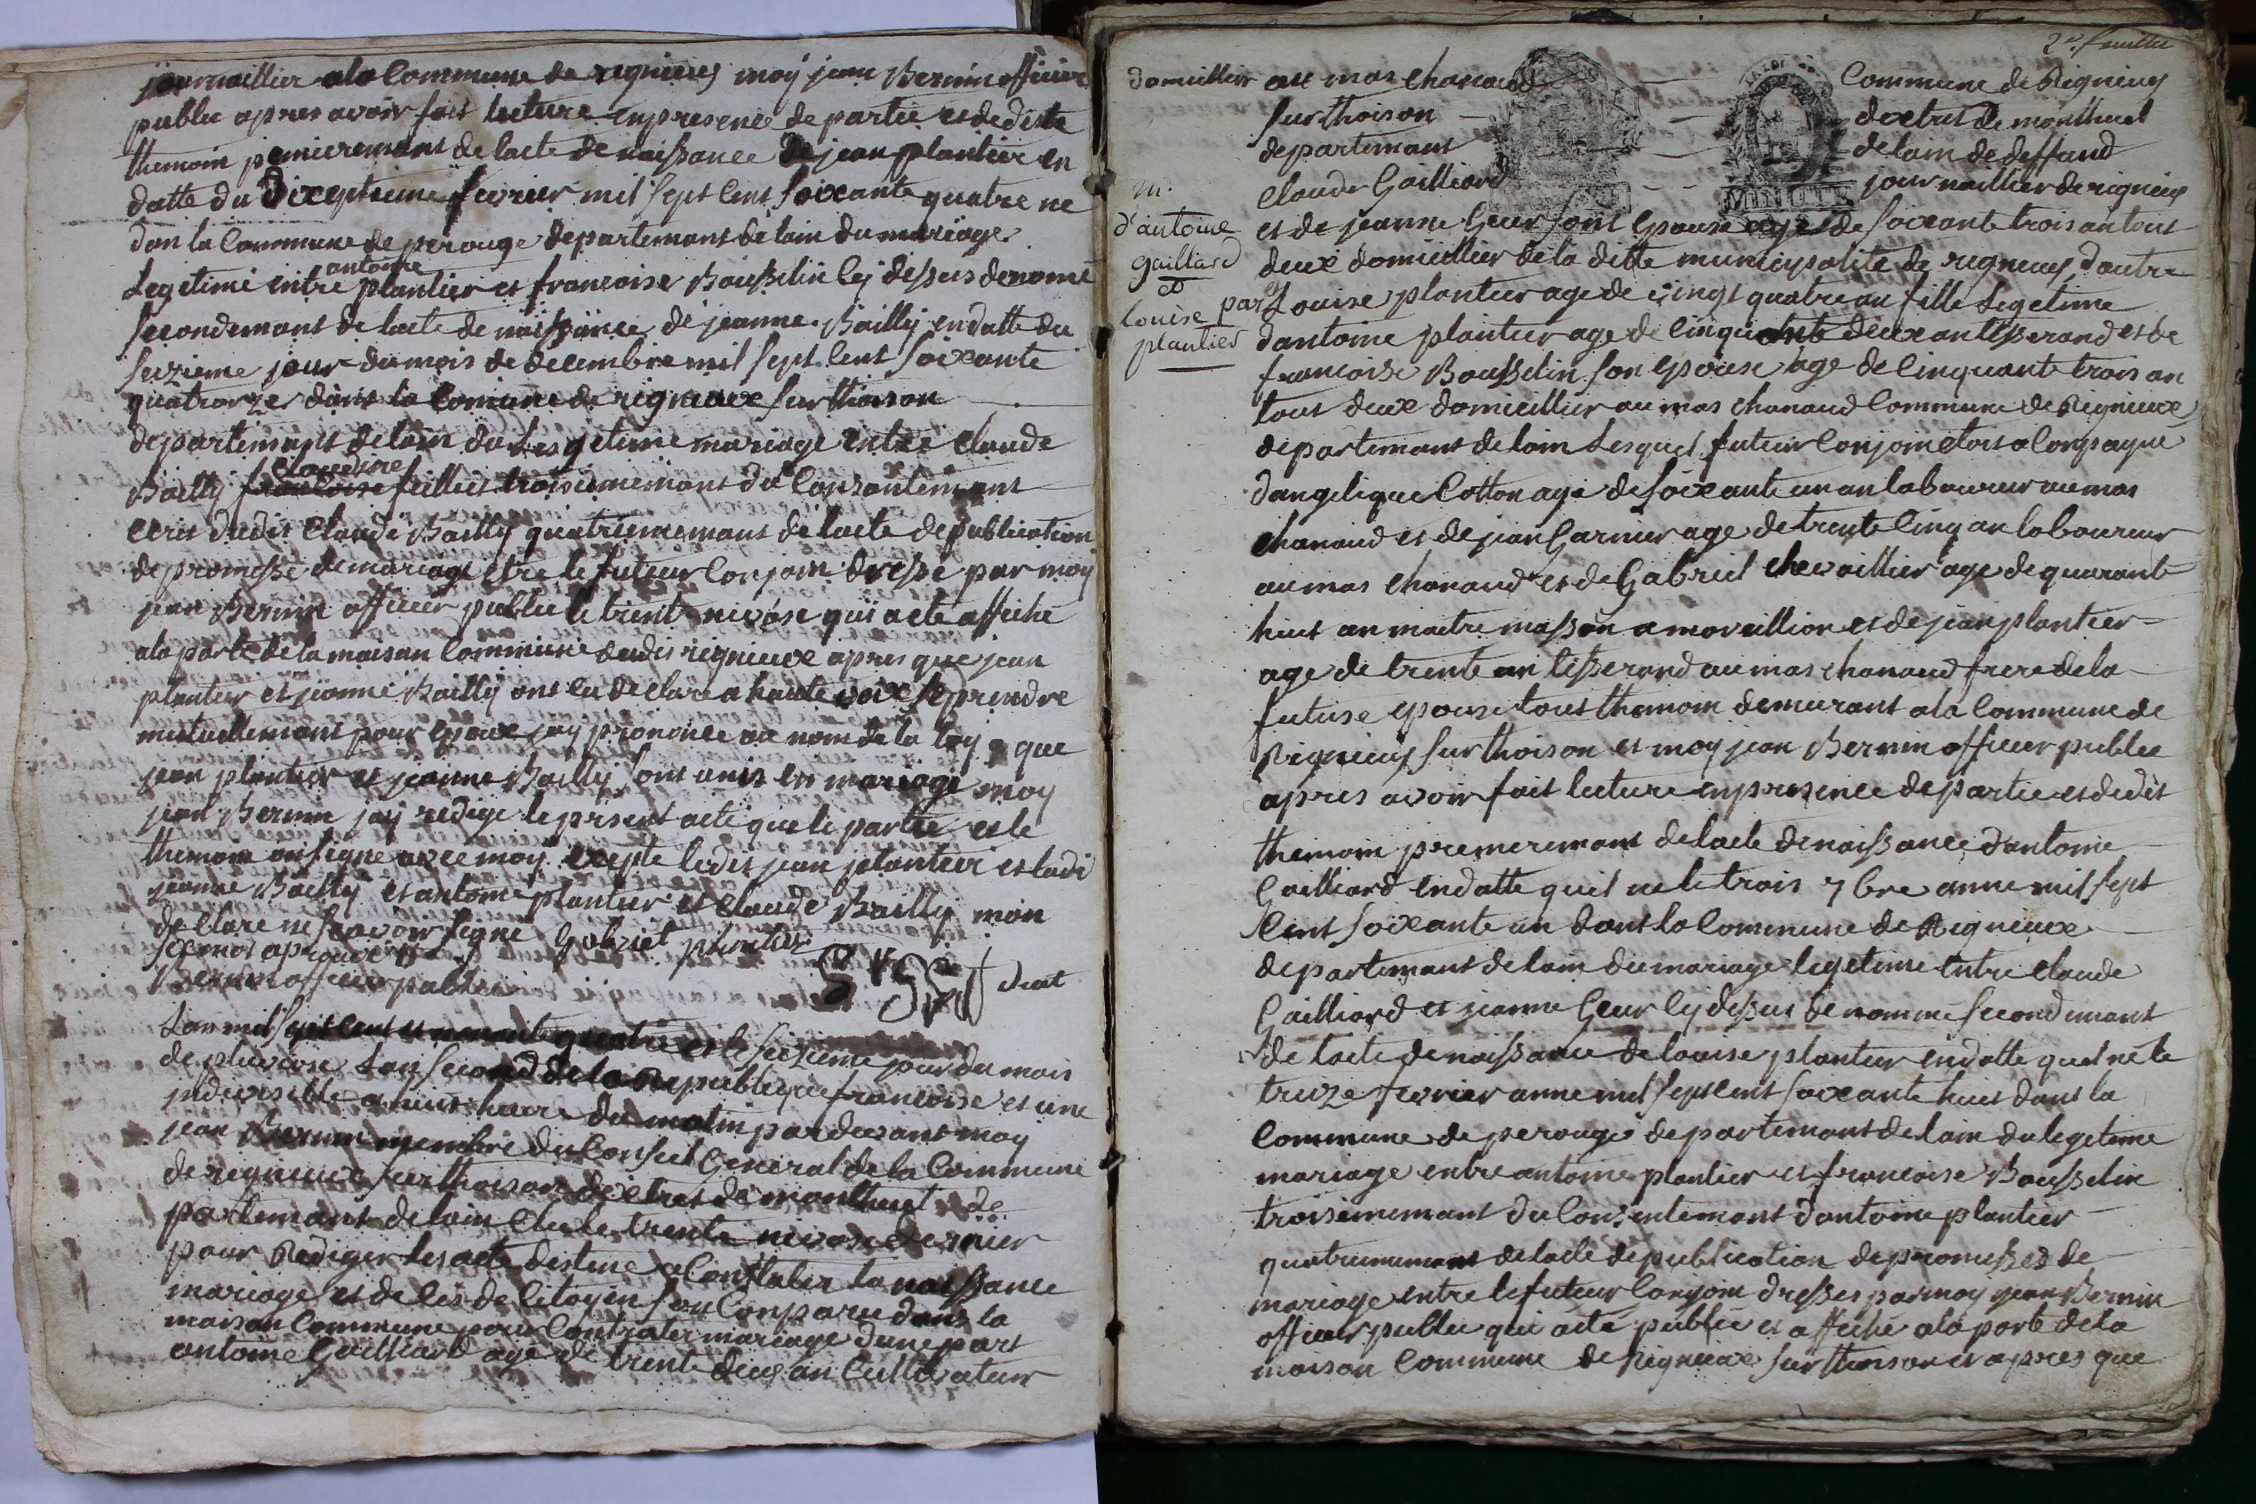 journaillier ala Commune de rignieus moy jean Bernin officier
public apres avoir fait lecture enpresence de partie et dedite
themoin premieremant de lacte de naissance de jean plantier en
datte du dixseptieme fevrier mil sept cent soixante quatre ne
dan la Commune de perouge departemant de lain du mariage
Legetime entre antoine plantier et francoise Bousselin cy dessus denomé
Secondemant de lacte de naissance de jeanne Bailly endatte du
seizieme jour dumois de decembre mil sept cent soixante
quatrorze dans la Comune de rignieux sur thoison
departemant de lain du Legetime mariage entre claude
Bailly francoise claudine fillies troisiememant du Consantemant
ecrit dudit claude Bailly quatriememant de lacte de publication
de promesse de mariage etre le futeur Conjoin dresse par moy
jean Bernin officier public le trent nivose qui a ete affiché
ala porte de la maison Commune dudit rignieux apres que jean
plantier et jeanne Bailly ont eu declare a haute voix se prendre
mutuellemant pour epoux jay prononcé au nom de la loy que
jean plantier et jeanne Bailly sont unis en mariage moy
jean Bernin jay redige le present acte que le partie et le
themoin on signe avec moy exepte ledit jean planteir et ladi
jeanne Bailly et antoine plantier et claude Bailly mon
declare ne scavoir signe Gabriel plantier
six mot aprouvé
Bernin officier public
Lan mil sept cent et nonante quatre et le seizieme jour du mois
de pluviose Lan second de la Republique francoise et une
jndivisible a huit heure du matin par devant moy
jean Bernin membre du Conseil General de la Commune
de rignieux sur thoison dextret de montluel de
partemant de lain elu le trente nivose dernier
pour Rediger les acte destine a Constater la naissance
mariage et deces de Citoyen son Conparu dans la
maison Commune pour Contrater mariage dune part
antoine Gailliard age de trente deux an Cultivateur
2e. feuillet
domicillier au mas chanaud Commune de Rignieus
sur thoison dextret de montluel
departemant delain de deffand
claude Gailliard journaillier de rignieux
et de jeanne Geur son epouse age de soixante trois an tout
deux domicillier de la ditte municipalite de rignieus dautre
par et Louise plantier age de vingt quatre an fille Legetime
m.
d'antoine
gaillard
et
louise
plantier
dantoine plantier age de cinquante deux an tisserand et de
francoise Bousselin son epouse age de cinquante trois an
tout deux domicillier au mas chanaud Commune de Rignieux
departemant de lain Lesquel futeur Conjoin etoit aConpagné
dangelique Cotton age de soixante un an laboureur au mas
chanaud et de jean Garnier age de trente cinq an laboureur
au mas chanaud et de Gabriel chevaillier age de quarante
huit an maitre masson a moreillion et de jean plantier
age de trente an tisserand au mas chanaud frere de la
future epouse tout themoin demurant ala Commune de
Rignieus sur thoison et moy jean Bernin officier public
apres avoir fait lecture enpresence de partie et dedit
themoin premieremant de lacte de naissance dantoine
Gailliard endatte quil ne le trois 7bre anne mil sept
Cent soixante un dant la Commune de Rignieux
departemant de lain du mariage legetime entre claude
Gailliard et jeanne Geur cy dessus denommé secondemant
de lacte de naissance de louise plantier endatte quel né le
treize fevrier anne mil sept cent soixante huit dans la
Commune de perouge departemant de lain du legetime
mariage entre antoine plantier et francoise Bousselin
troisiememant du Consentemant dantoine plantier
quatriememant de lacte de publication de promesses de
mariage entre le futeur Conjoin dresses par moy jean Bernin
officier public qui a ete publie et affiche ala porte de la
maison Commune de Rignieux sur thoison et apres que